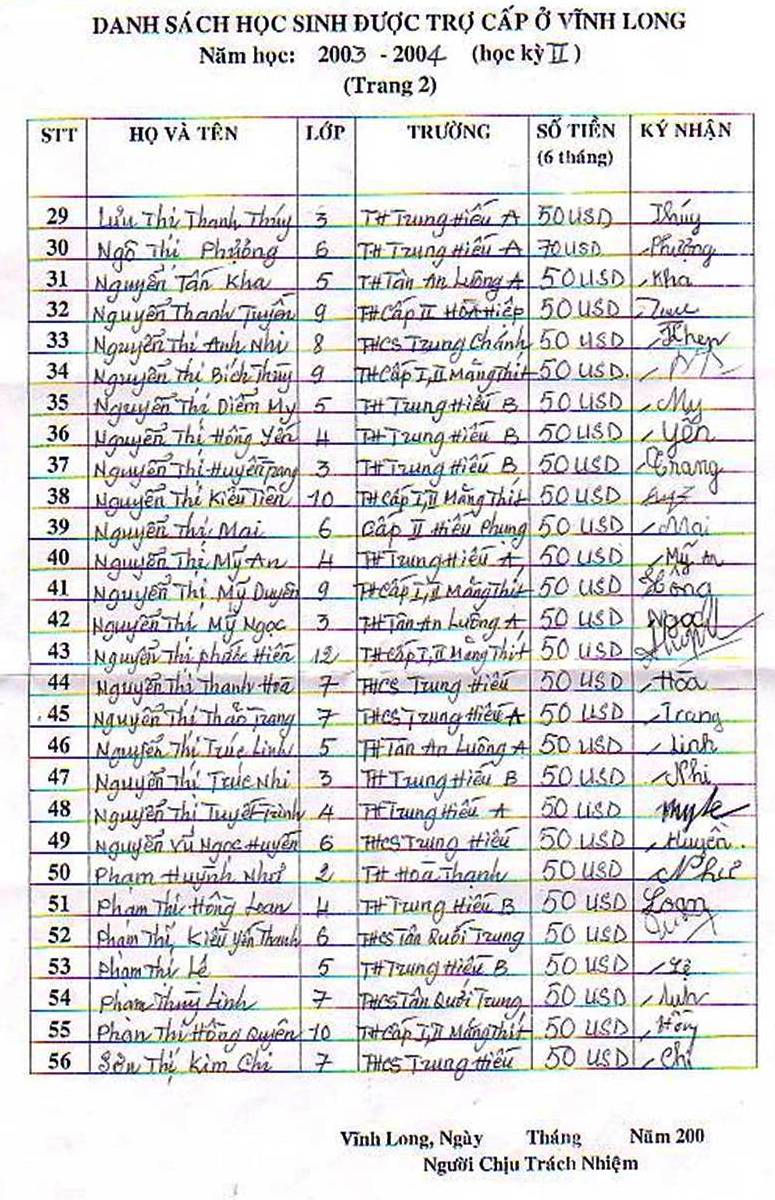 DANH SÁCH HỌC SINH ĐƯỢC TRỢ CẤP Ở VĨNH LONG
Năm học: 2003 - 2004 (học kỳ II)
(Trang 2)
STT HỌ VÀ TÊN LỚP TRƯỜNG SỐ TIỀN KÝ NHẬN
(6 tháng)
29 Lưu Thị Thanh Thúy 3 TH Trung Hiếu A 50 USD Thúy
30 Ngô Thị Phượng 6 TH Trung Hiếu A 70 USD Phượng
31 Nguyễn Tấn Kha 5 TH Tân An Luông A 50 USD Kha
32 Nguyễn Thanh Tuyền 9 TH Cấp II Hòa Hiệp 50 USD
33 Nguyễn Thị Anh Nhi 8 THCS Trung Chánh 50 USD Khen
34 Nguyễn Thị Bích Thủy 9 TH Cấp I, II Măng Thít 50 USD.
35 Nguyễn Thị Diễm My 5 TH Trung Hiếu B 50 USD My
36 Nguyễn Thị Hồng Yến 4 TH Trung Hiếu B 50 USD Yến
37 Nguyễn Thị Huyền Trang 3 TH Trung Hiếu B 50 USD Trang
38 Nguyễn Thị Kiều Tiên 10 TH Cấp I, II Măng Thít 50 USD
39 Nguyễn Thị Mai 6 Cấp II Hiếu Phụng 50 USD Mai
40 Nguyễn Thị Mỹ An 4 TH Trung Hiếu A 50 USD Mỹ An
41 Nguyễn Thị Mỹ Duyên 9 TH Cấp I, II Măng Thít 50 USD Hồng
42 Nguyễn Thị Mỹ Ngọc 3 TH Tân An Luông A 50 USD Ngọc
43 Nguyễn Thị Phước Hiền 12 TH Cấp I, II Măng Thít 50 USD
44 Nguyễn Thị Thanh Hòa 7 THCS Trung Hiếu 50 USD Hòa
45 Nguyễn Thị Thảo Trang 7 THCS Trung Hiếu A 50 USD Trang
46 Nguyễn Thị Trúc Linh 5 TH Tân An Luông A 50 USD Linh
47 Nguyễn Thị Trúc Nhi 3 TH Trung Hiếu B 50 USD Nhi
48 Nguyễn Thị Tuyết Trinh 4 TH Trung Hiếu A 50 USD
49 Nguyễn Vũ Ngọc Huyền 6 THCS Trung Hiếu 50 USD Huyền.
50 Phạm Huỳnh Như 2 TH Hòa Thạnh 50 USD Như
51 Phạm Thị Hồng Loan 4 TH Trung Hiếu B 50 USD Loan
52 Phạm Thị Kiều Yến Thanh 6 THCS Tân Quới Trung 50 USD
53 Phạm Thị Lệ 5 TH Trung Hiếu B 50 USD Lệ
54 Phạm Thùy Linh 7 THCS Tân Quới Trung 50 USD Linh
55 Phan Thị Hồng Quyên 10 TH Cấp I, II Măng Thít 50 USD Hồng
56 Sơn Thị Kim Chi 7 THCS Trung Hiếu 50 USD Chi
Vĩnh Long, Ngày Tháng Năm 200
Người Chịu Trách Nhiệm